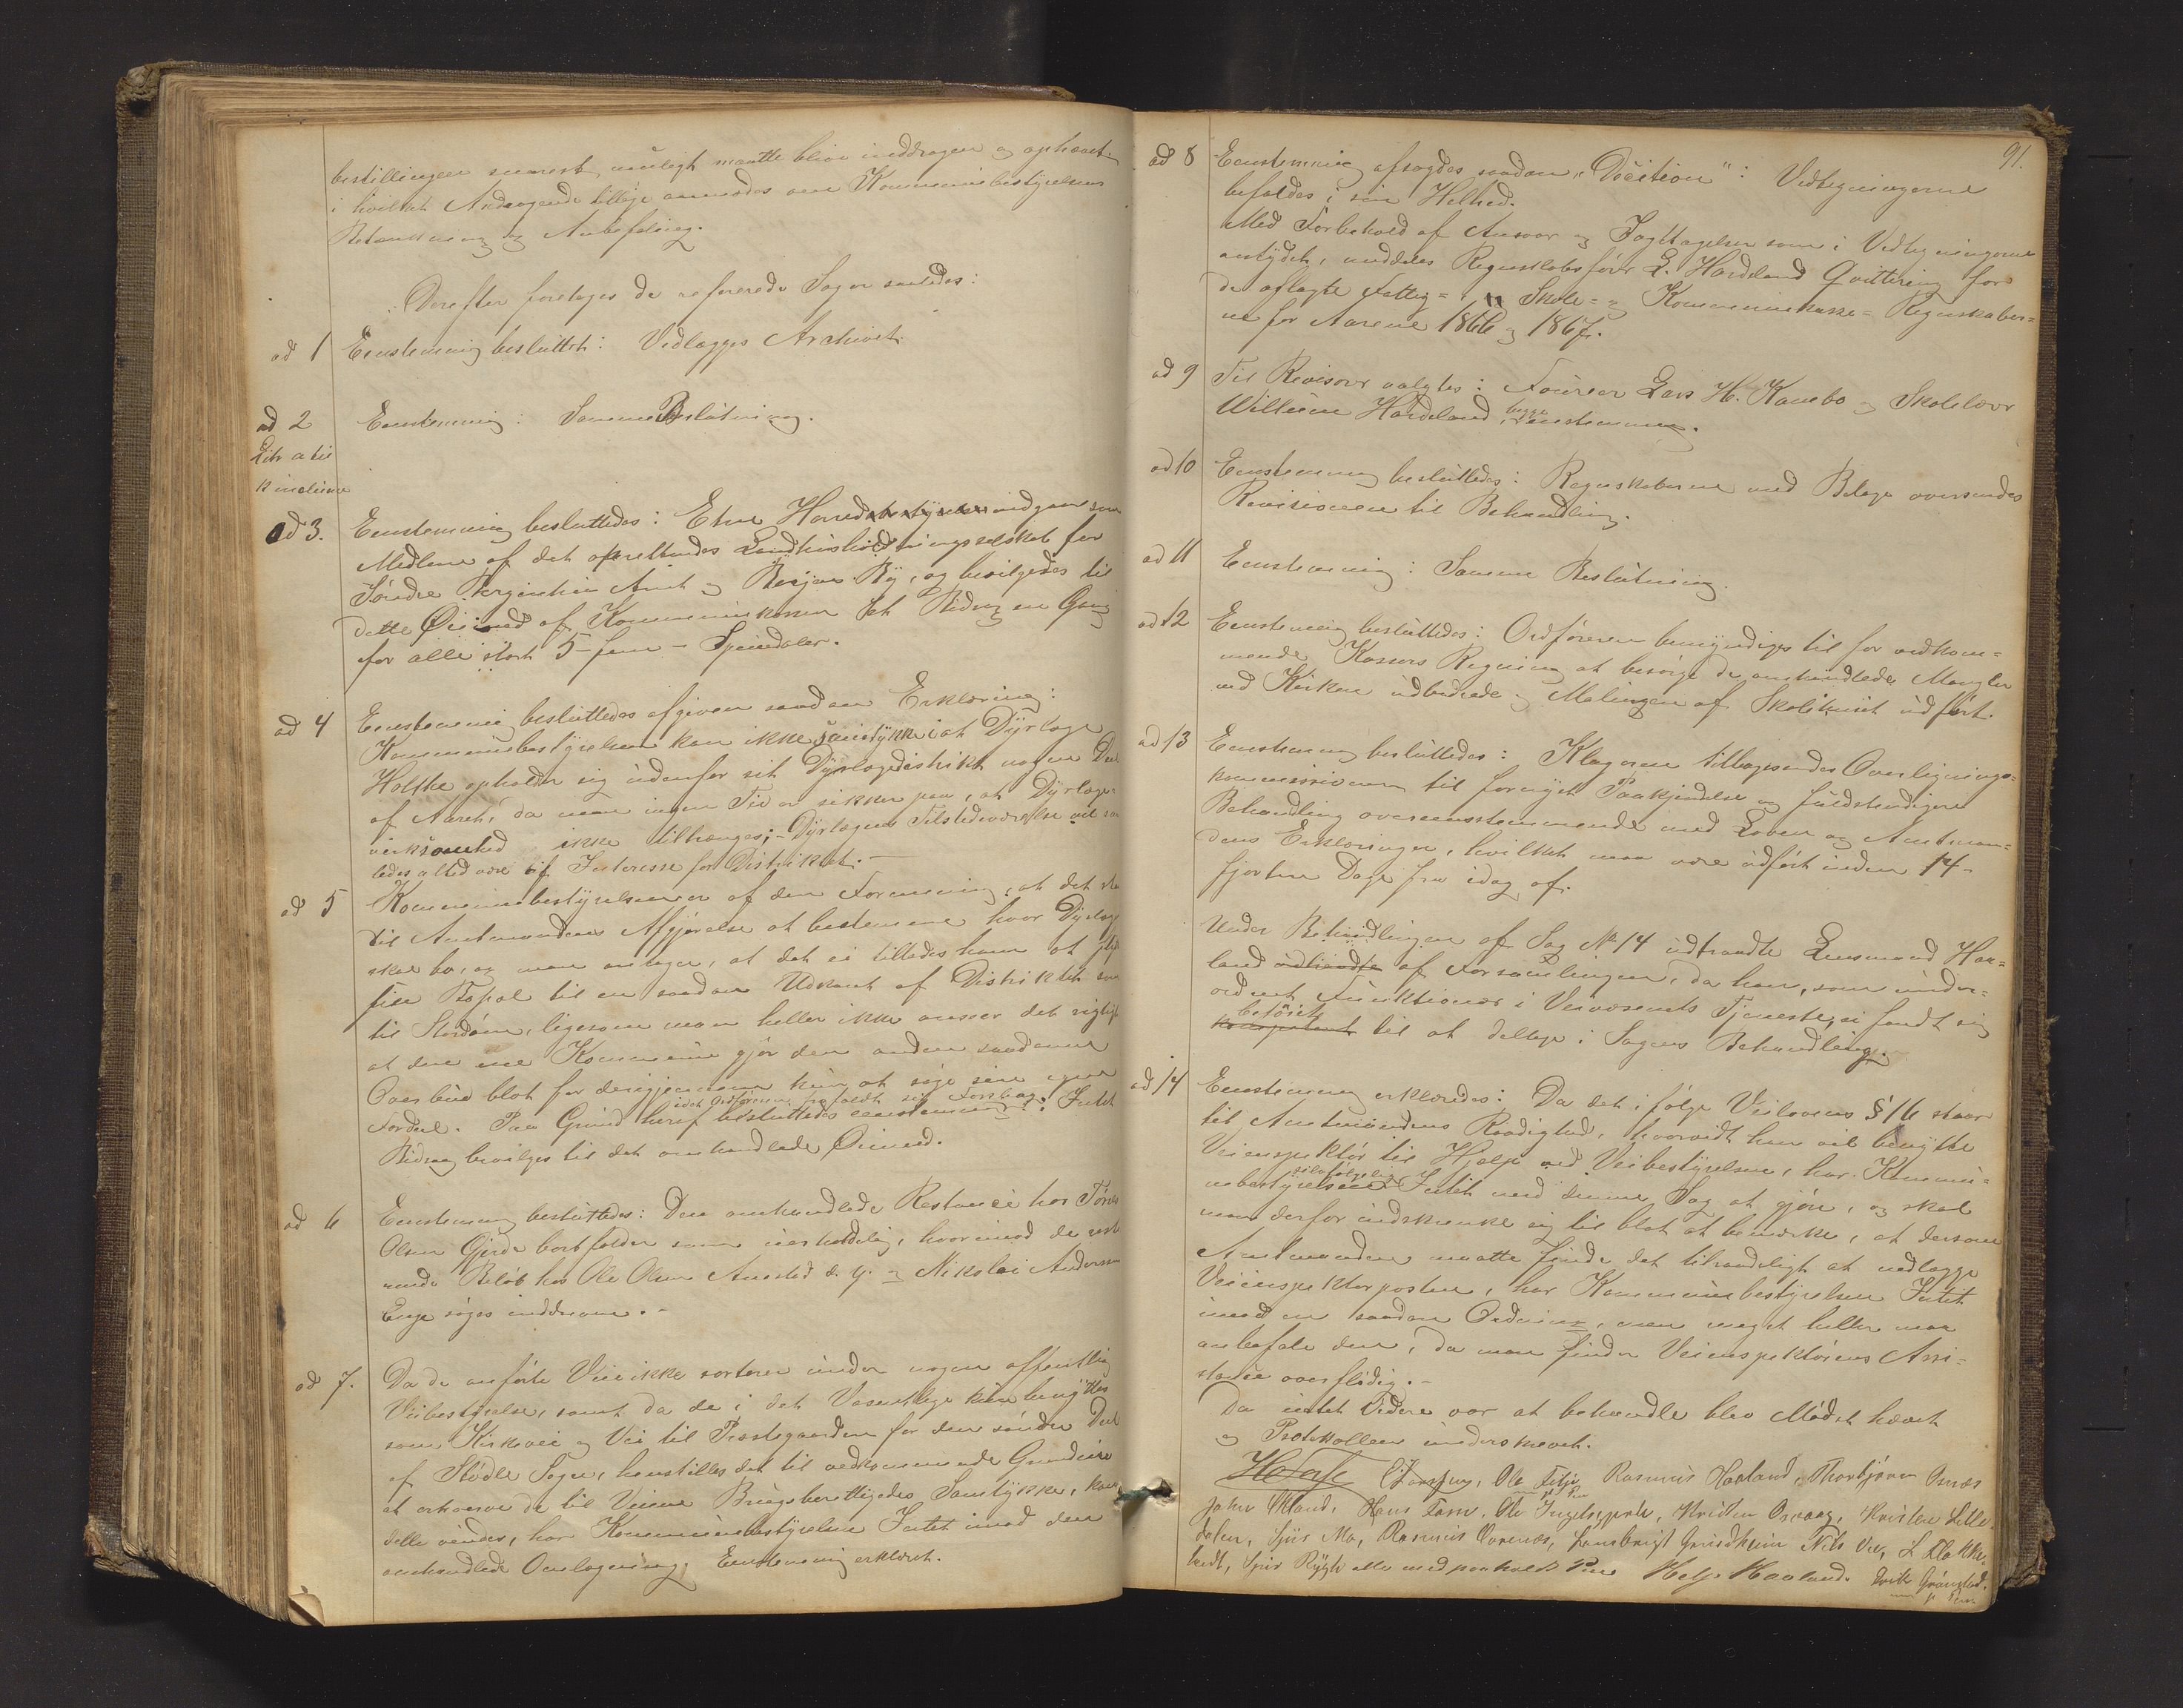 bestillingen snarest muligt maatte blive inddragen og ophævet
i hvilket Andragende tillige anmodes om Kommunebestyrelsens
Betænkning og Anbefaling.
Derefter foretoges de refererede Sager saaledes:
ad 1 Eenstemmig besluttet: Vedlægges Archivet.
ad 2 Eenstemmig: Samme Beslutning.
Litr a til
k inclusive
ad 3. Eenstemmig besluttedes: Etne Herredsbestyrelse indgaar som
Medlem af det oprettendes Landhusholdningsselskab for
Søndre Bergenhus Amt og Bergens By, og bevilgedes til
dette Øiemed af Kommunekassen et Bidrag en Gang
for alle stort 5 - fem - Speciedaler.
ad 4 Eenstemmig besluttedes afgiven saadan Erklæring:
Kommunebestyrelsen kan ikke samtykke i at Dyrlæge
Holtke opholder sig udenfor sit Dyrlægedistrikt nogen Deel
af Aaret, da man ingen Tid er sikker paa, at Dyrlæge-
virksomhed ikke tiltrænges; - Dyrlægens Tilstedeværelse vil saa
ledes altid være af Interesse for Distriktet. -
ad 5 Kommunebestyrelsen er af den Formening, at det staar
til Amtmandens Afgjørelse at bestemme hvor Dyrlægen
skal bo, og man antager, at det ei tillades ham at flytte
sin Bopæl til en saadan Udkant af Distriktet som
til Stordøen, ligesom man heller ikke anseer det rigtigt
at den ene Kommune gjør den anden saadanne
Overbud blot for derigjennem kun at søge sin egen
Fordeel. Paa Grund heraf besluttedes eenstemmig: Intet
idet Ordføreren frafaldt sit Forslag
Bidrag bevilges til det omhandlede Øiemed.
ad 6 Eenstemmig besluttedes: Den omhandlede Restance hos Tørres
Olsen Gjerde bortfalder som uerholdelig, hvorimod de reste
rende Beløb hos Ole Olsen Anested d. y. og Nikolai Andersen
Enge søges inddrevne. -
ad 7. Da de anførte Veie ikke sorterer under nogen offentlig
Veibestyrelse, samt da de i det Væsentlige kun benyttes
som Kirkevei og Vei til Præstegaarden for den søndre Deel
af Stødle Sogn, henstilles det til vedkommende Grundeiere
at erhverve de til Veiene Brugsberettigedes Samtykke, kan
dette vindes, har Kommunebestyrelsen Intet imod den
omhandlede Omlægning. Eenstemmig erklæret.
91.
ad 8 Eenstemmig afsagdes saadan "Decition": Vedtegningerne
befaldes i sin Helhed.
Med Forbehold af Ansvar og Iagttagelser som i Vedtegningerne
antydet, meddeles Regnskabsfører L. Hardeland Qvittering for
de aflagte Fattig=, Skole= og Kommunekasse= Regnskaber=
ne for Aarene 1866 og 1867.
ad 9 Til Revisorer valgtes: Fourier Lars H. Kambo og Skolelærer
Willum Hardeland, begge Eenstemmig.
ad 10 Eenstemmig besluttedes: Regnskaberne med Bilage oversendes
Revisionen til Behandling.
ad 11 Eenstemmig: Samme Beslutning.
ad 12 Eenstemmig besluttedes: Ordføreren bemyndiges til for vedkom=
mende Kassers Regning at besørge de omhandlede Mangler
ved Kirken udbedrede og Malingen af Skolehuset udført.
ad 13 Eenstemmig besluttedes: Klagerne tilbagesendes Overlignings=
kommissionen til fornyet Paakjendelse og fuldstændigere
Behandling overeensstemmende med Loven og Amtman=
dens Erklæringer, hvilket maa være udført inden 14-
fjorten Dage fra idag af.
Under Behandlingen af Sag No 14 udtraadte Lensmand Haa=
land udtraadte af Forsamlingen, da han, som under=
ordnet Funktionær i Veivæsenets Tjeneste, ei fandt sig
beføiet
kompetent til at deltage i Sagens Behandling.
ad 14 Eenstemmig erklæredes: Da det ifølge Veilovens § 16 staar
til Amtmandens Raadighed, hvorvidt han vil benytte
Veiinspektør til Hjælp ved Veibestyrelsen, har Kommu=
selvfølgelig
nebestyrelsen Intet med denne Sag at gjøre, og skal
man derfor indskrænke sig til blot at bemærke, at dersom
Amtmanden maatte finde det tilraadeligt at nedlægge
Veiinspektørposten, har Kommunebestyrelsen Intet
imod en saadan Ordning, men meget heller maa
anbefale den, da man finder Veiinspektørens Assi=
stance overflødig. -
Da intet Videre var at behandle blev Mødet hævet
og Protokollen underskrevet.
Ole Fitje Rasmus Haaland. Thorbjørn Osnes
m. p. Pen
John Øland, Hans Tesse, Ole Ingebrigt, Kristen Osvaag, Kristen Lille
dalen, Sjur Mo, Rasmus Overnes, Lambrigt Grindheim Nils Vee, L Flokke
tvedt, Sjur Rygh alle med paaholdt Pen Helje Haaland. Erik Grønstad.
m p Pen